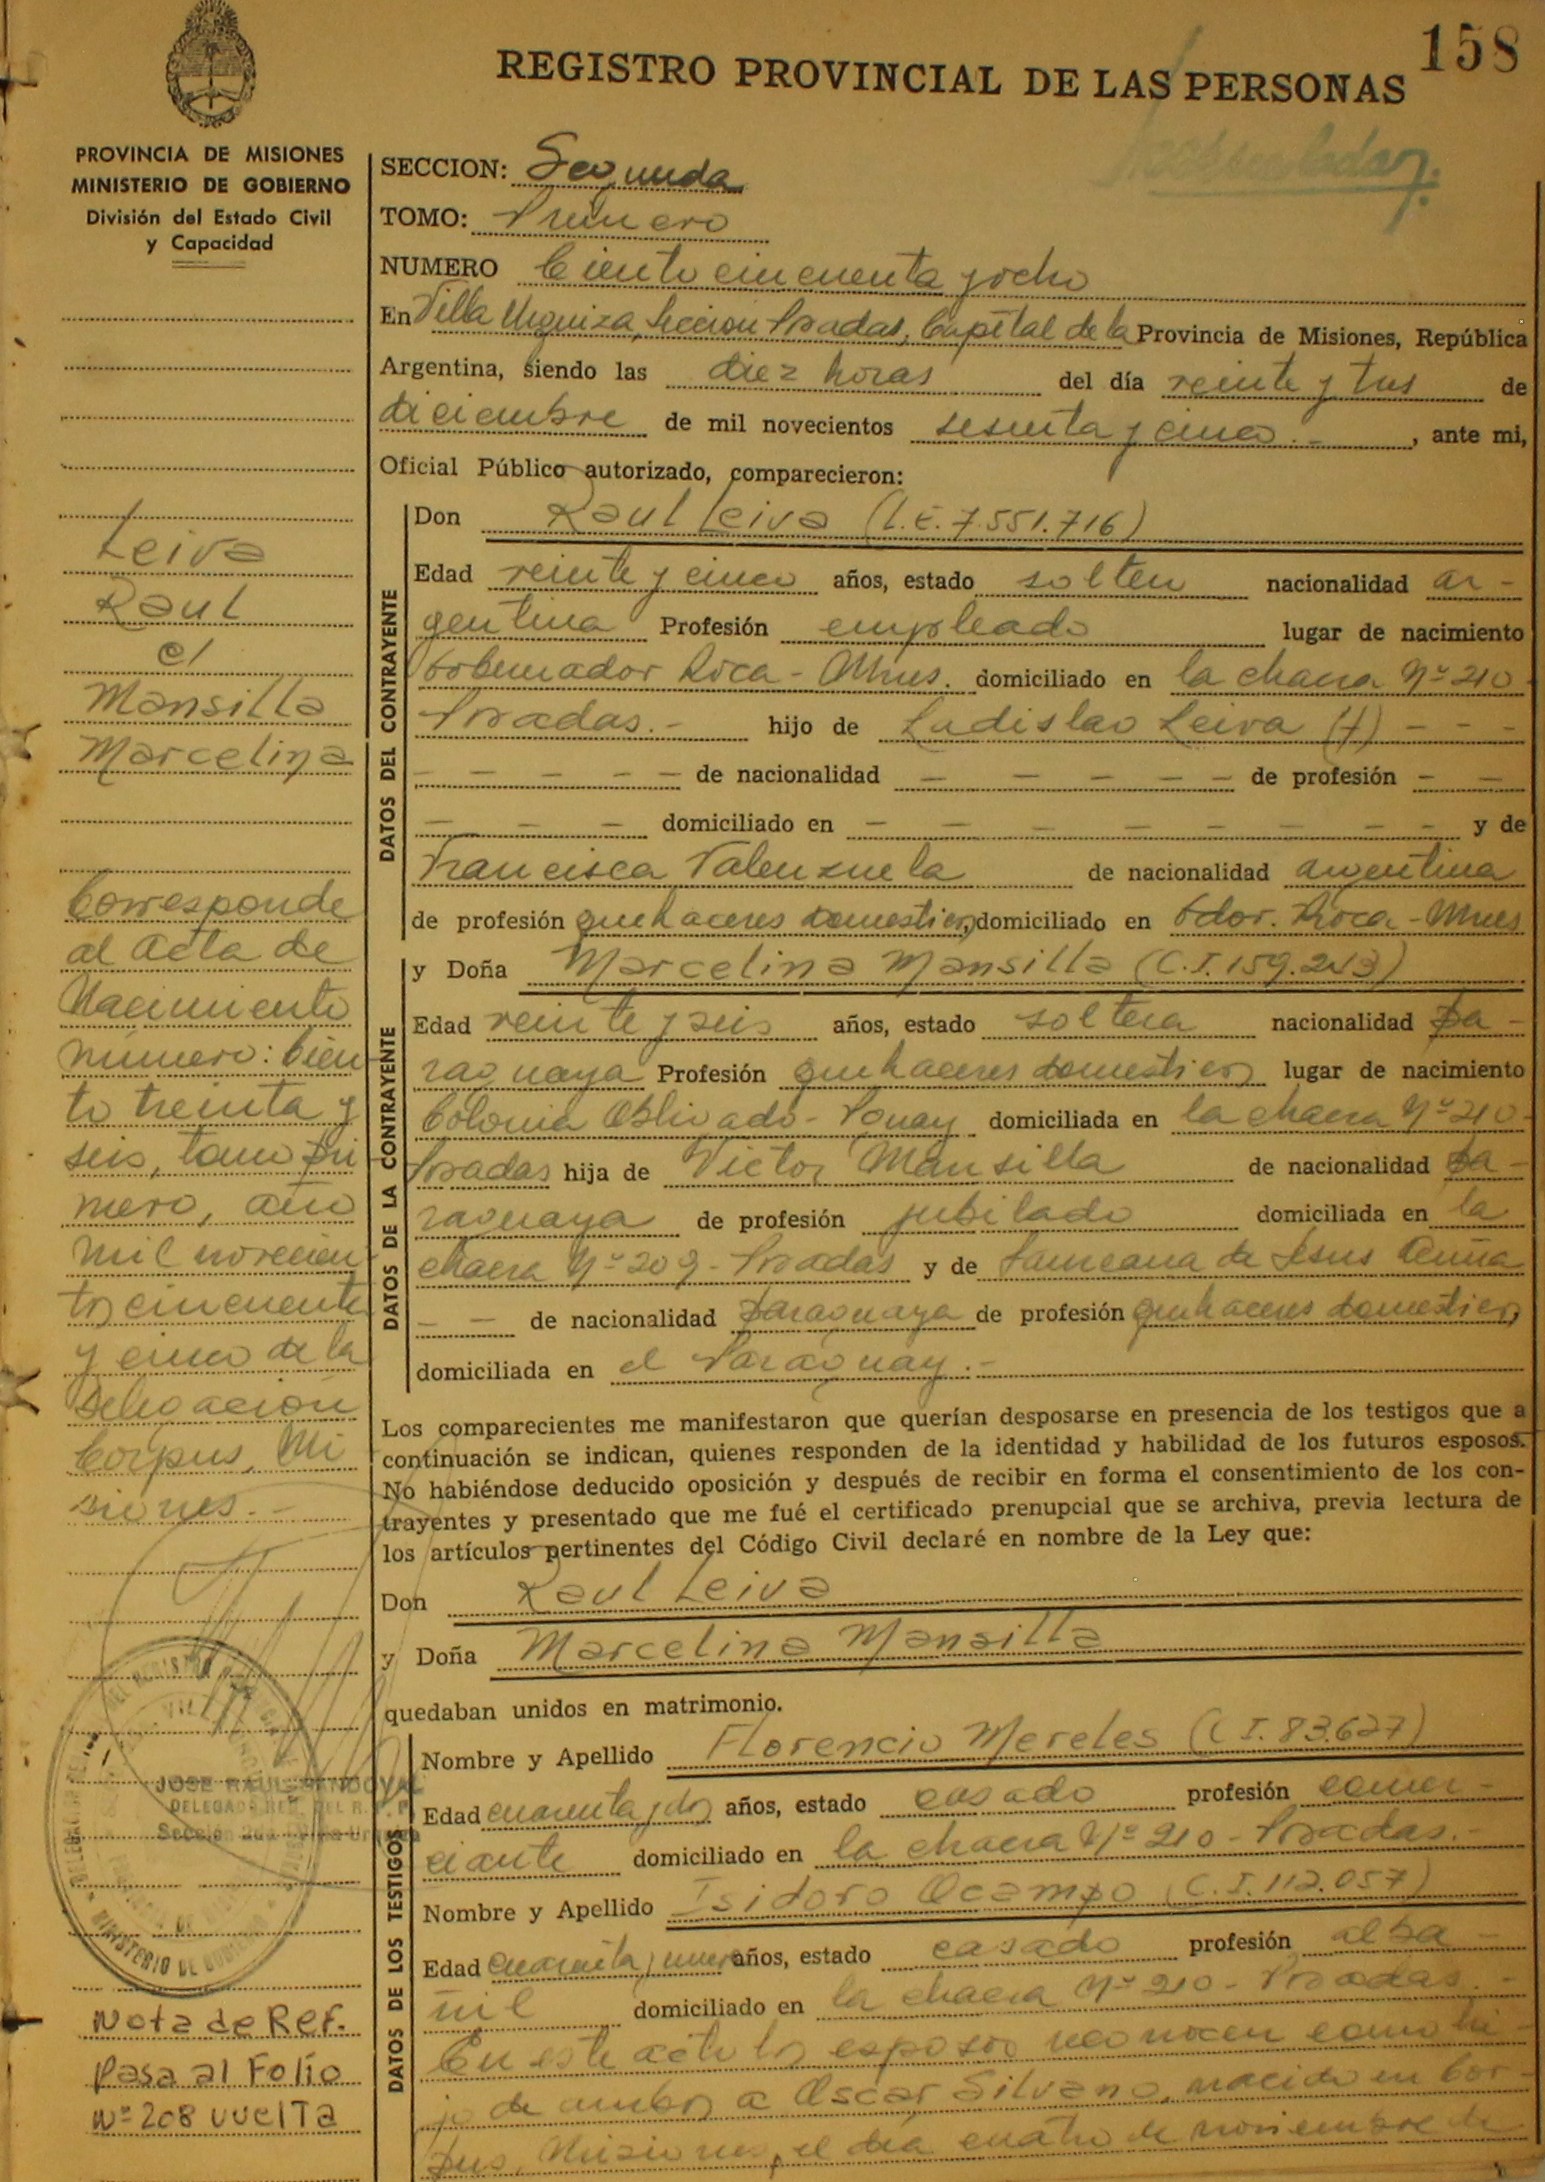 158
REGISTRO PROVINCIAL DE LAS PERSONAS
PROVINCIA DE MISIONES
MINISTERIO DE GOBIERNO
División del Estado Civil
y Capacidad
SECCION: Segunda
TOMO: Primero
NUMERO Ciento cincuenta y ocho
En Villa Urquiza, Seccion Posadas, Capital de la Provincia de Misiones, República
Argentina, siendo las diez horas del día veinte y tres de
diciembre de mil novecientos sesenta y cinco.- , ante mi,
Oficial Público autorizado, comparecieron:
DATOS DEL CONTRAYENTE
Don Raul Leiva (L.E. 7.551.716)
Edad veinte y cinco años, estado soltero nacionalidad ar-
gentina Profesión empleado lugar de nacimiento
Gobernador Roca - Mnes. domiciliado en la chacra Nº 210-
Posadas.- hijo de Ladislao Leiva (f) - - -
- - - - - de nacionalidad - - - - - - de profesión - -
- - - domiciliado en - - - - - - - - y de
Francisca Valenzuela de nacionalidad argentina
de profesión quehaceres domesticos, domiciliado en Gdor. Roca - Mnes
DATOS DE LA CONTRAYENTE
y Doña Marcelina Mansilla (C.I. 159.243)
Edad veinte y seis años, estado soltera nacionalidad pa-
raguaya Profesión quehaceres domesticos lugar de nacimiento
Colonia Obligado - Pguay domiciliada en la chacra Nº 210-
Posadas hija de Victor Mansilla de nacionalidad pa-
raguaya de profesión jubilado domiciliada en la
chacra Nº 209 - Posadas y de de Jesus Acuña
- - de nacionalidad paraguaya de profesión quehaceres domesticos,
domiciliada en el Paraguay.-
Los comparecientes me manifestaron que querían desposarse en presencia de los testigos que a
continuación se indican, quienes responden de la identidad y habilidad de los futuros esposos.
No habiéndose deducido oposición y después de recibir en forma el consentimiento de los con-
trayentes y presentado que me fué el certificado prenupcial que se archiva, previa lectura de
los artículos pertinentes del Código Civil declaré en nombre de la Ley que:
Don Raul Leiva
y Doña Marcelina Mansilla
quedaban unidos en matrimonio.
DATOS DE LOS TESTIGOS
Nombre y Apellido Florencio Mereles (C.I. 83.627)
Edad cuarenta y dos años, estado casado profesión comer-
ciante domiciliado en la chacra Nº 210 - Posadas.-
Nombre y Apellido Isidoro Ocampo (C.I. 112.057)
Edad cuarenta y nueve años, estado casado profesión alba-
ñil domiciliado en la chacra Nº 210 - Posadas.-
En este acto los esposos reconocen como hi-
jo de ambos a Oscar Silvano, nacido en Cor-
pus, Misiones, el dia cuatro de noviembre de
Leiva
Raul
c/
Mansilla
Marcelina
Corresponde
al acta de
Nacimiento
número: Cien
to treinta y
seis, tomo pri
mero, año
mil novecien
tos cincuenta
y cinco de la
Delegación
Corpus, Mi
siones.-
JOSE RAUL SENDOVAL
DELEGADO REG. DEL R. P. P.
Sección 2da Villa Urquiza
MINISTERIO DE GOBIERNO
Nota de Ref.
Pasa al Folio
Nº 208 vuelta